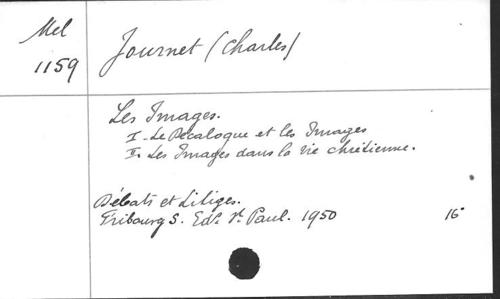 Mel
1159
Journet (Charles)
Les Images.
I - Le Décalogue et les Images
II. Les Images dans la vie chrétienne.
Débats et Litiges.
Fribourg S. Eds. St Paul. 1950 16°